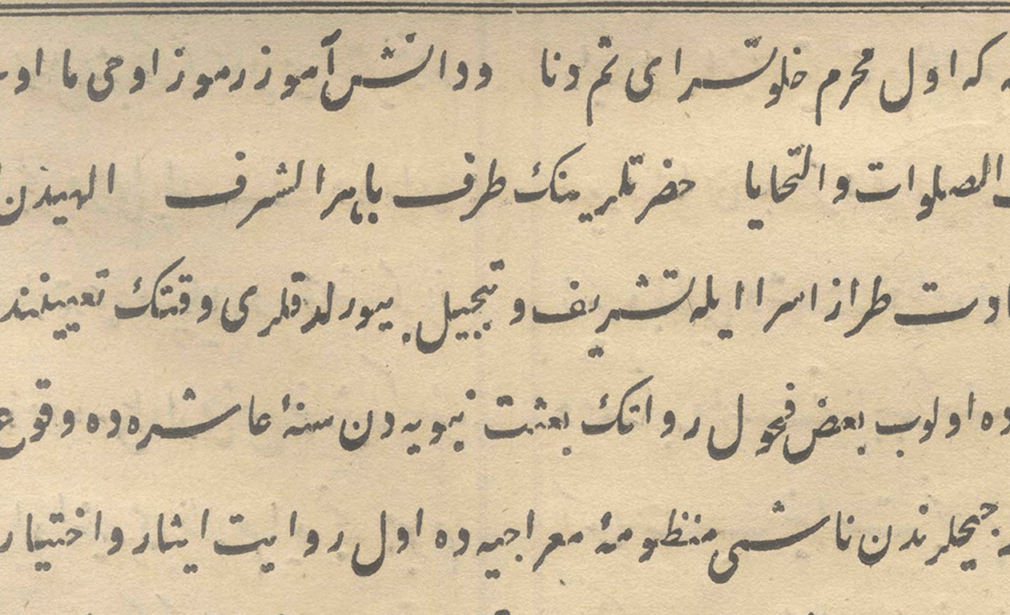 كه اول محرم خلوتسرای ثم دنا ودانش آموز رموز اوحی ما اوحی
الصلوات والتحایا حضرتلرینك طرف باهر الشرف الهیدن
طراز اسرا ایله تشریف وتبجیل بیورلدقلری وقتك تعییننده
ده اولوب بعض فحول رواتك بعثت نبویه دن سنهٔ عاشره ده وقوع
ناشی منظومهٔ معراجیه ده اول روایت ایثار واختیار